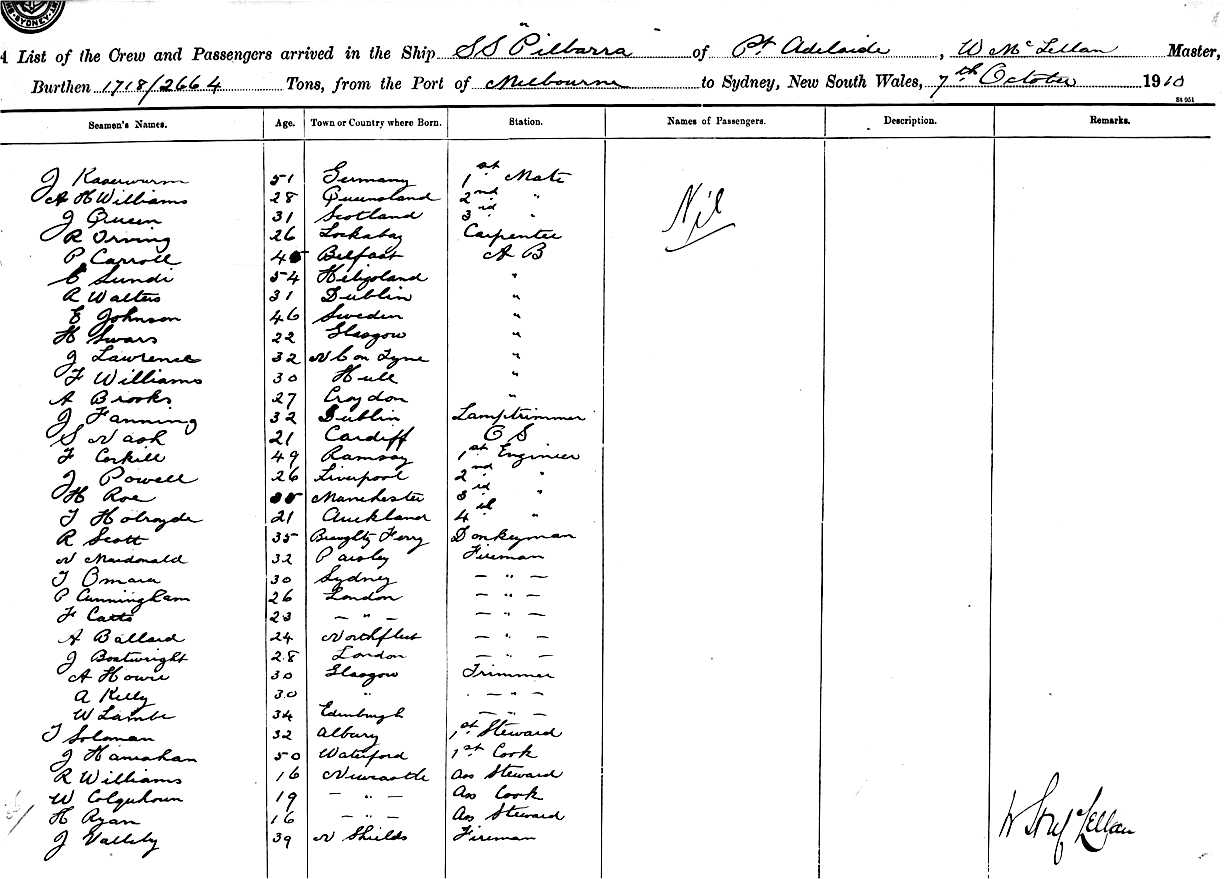 SYDNEY
A List of the Crew and Passengers arrived in the Ship SS Pilbarra of Pt Adelaide, W McLellan Master,
Burthen 1718/2664 Tons, from the Port of Melbourne to Sydney, New South Wales, 7th October 1910
St 951
Seamen's Names. Age. Town or Country where Born. Station. Names of Passengers. Description. Remarks.
J 51 Germany 1st Mate
A H Williams 28 Queensland 2nd "
Nil
J 31 Scotland 3rd "
R Irving 26 Carpenter
P Carroll Belfast A B
54 Heligoland "
R Walters 31 Dublin "
E Johnson 46 Sweden "
H Swars 22 Glasgow "
J Lawrence 32 N C on Tyne "
F Williams 30 Hull "
A Brooks 27 Croydon "
J Fanning 32 Dublin Lamptrimmer
S Nash 21 Cardiff O S
F Corkill 49 Ramsay 1st Engineer
J Powell 26 Liverpool 2nd "
H Roe Manchester 3rd "
T Holroyde 21 Auckland 4th "
R Scott 35 Broughty Ferry Donkeyman
N Macdonald 32 Paisley Fireman
T Omara 30 Sydney — " —
P Cunningham 26 London — " —
F Catts 23 — " — — " —
A Ballard 24 Northfleet — " —
J Boatwright 28 London — " —
A Howie 30 Glasgow Trimmer
A Kelly 30 " — " —
W Lambe 34 Edinburgh — " —
T Soloman 32 Albury 1st Steward
J Hanrahan 50 Waterford 1st Cook
R Williams 16 Newcastle Ass Steward
W Colquhoun 19 — " — Ass Cook
H Ryan 16 — " — Ass Steward
J 39 N Shields Fireman